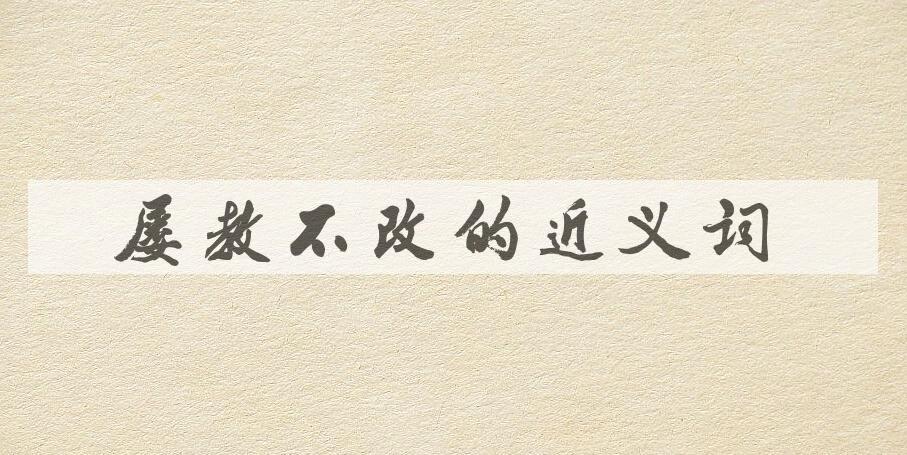 屡教不改的近义词